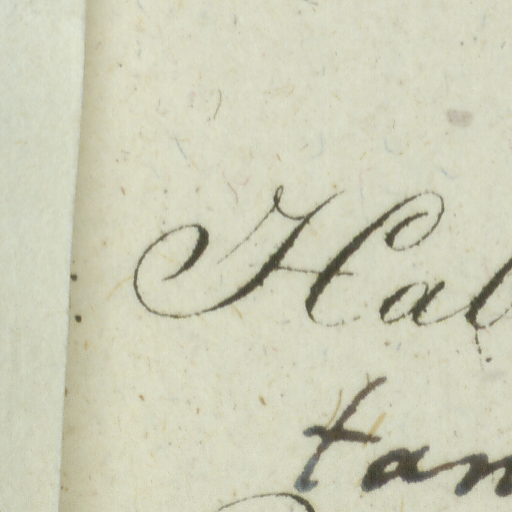 Hal
tan